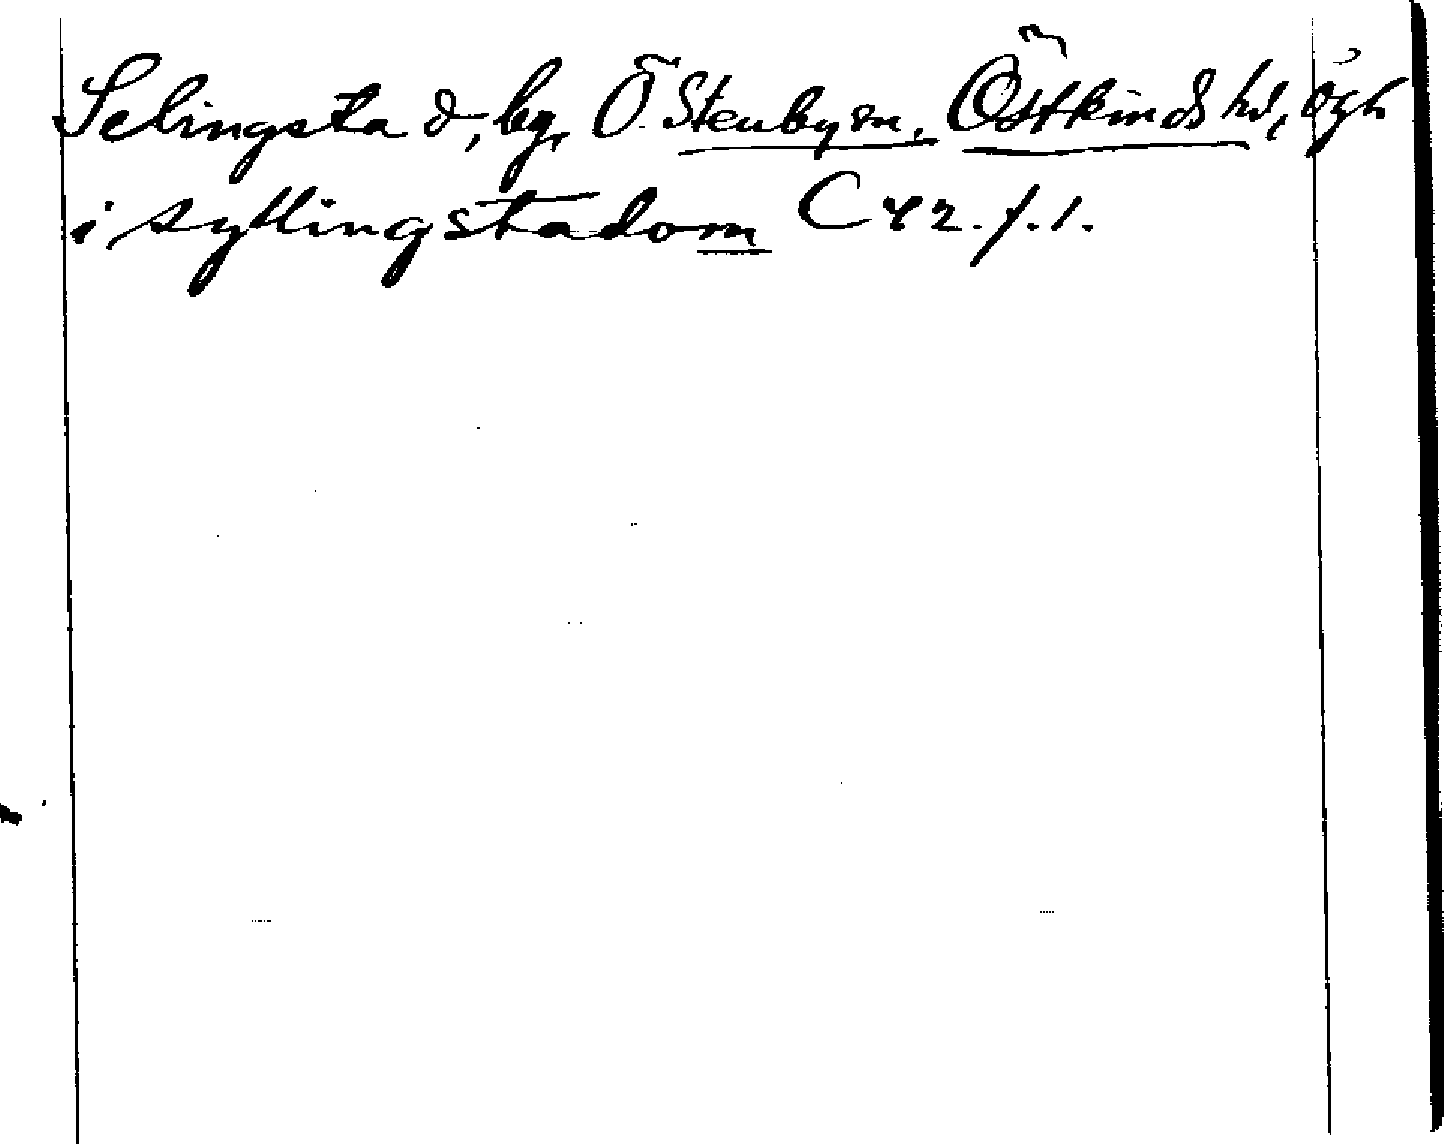 Selingstad, by, Ö. Stenby sn, Östkinds hd, Ögl.
i syllingstadom C 42. f. 1.